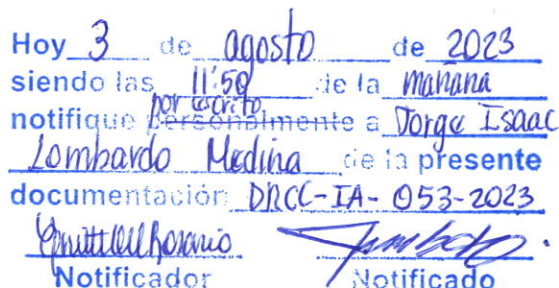 Hoy 3 de agosto de 2023
siendo las 11:50 de la mañana
por escrito
notifique personalmente a Jorge Isaac
Lombardo Medina de la presente
documentación DRCC-IA-053-2023
Notificador Notificado